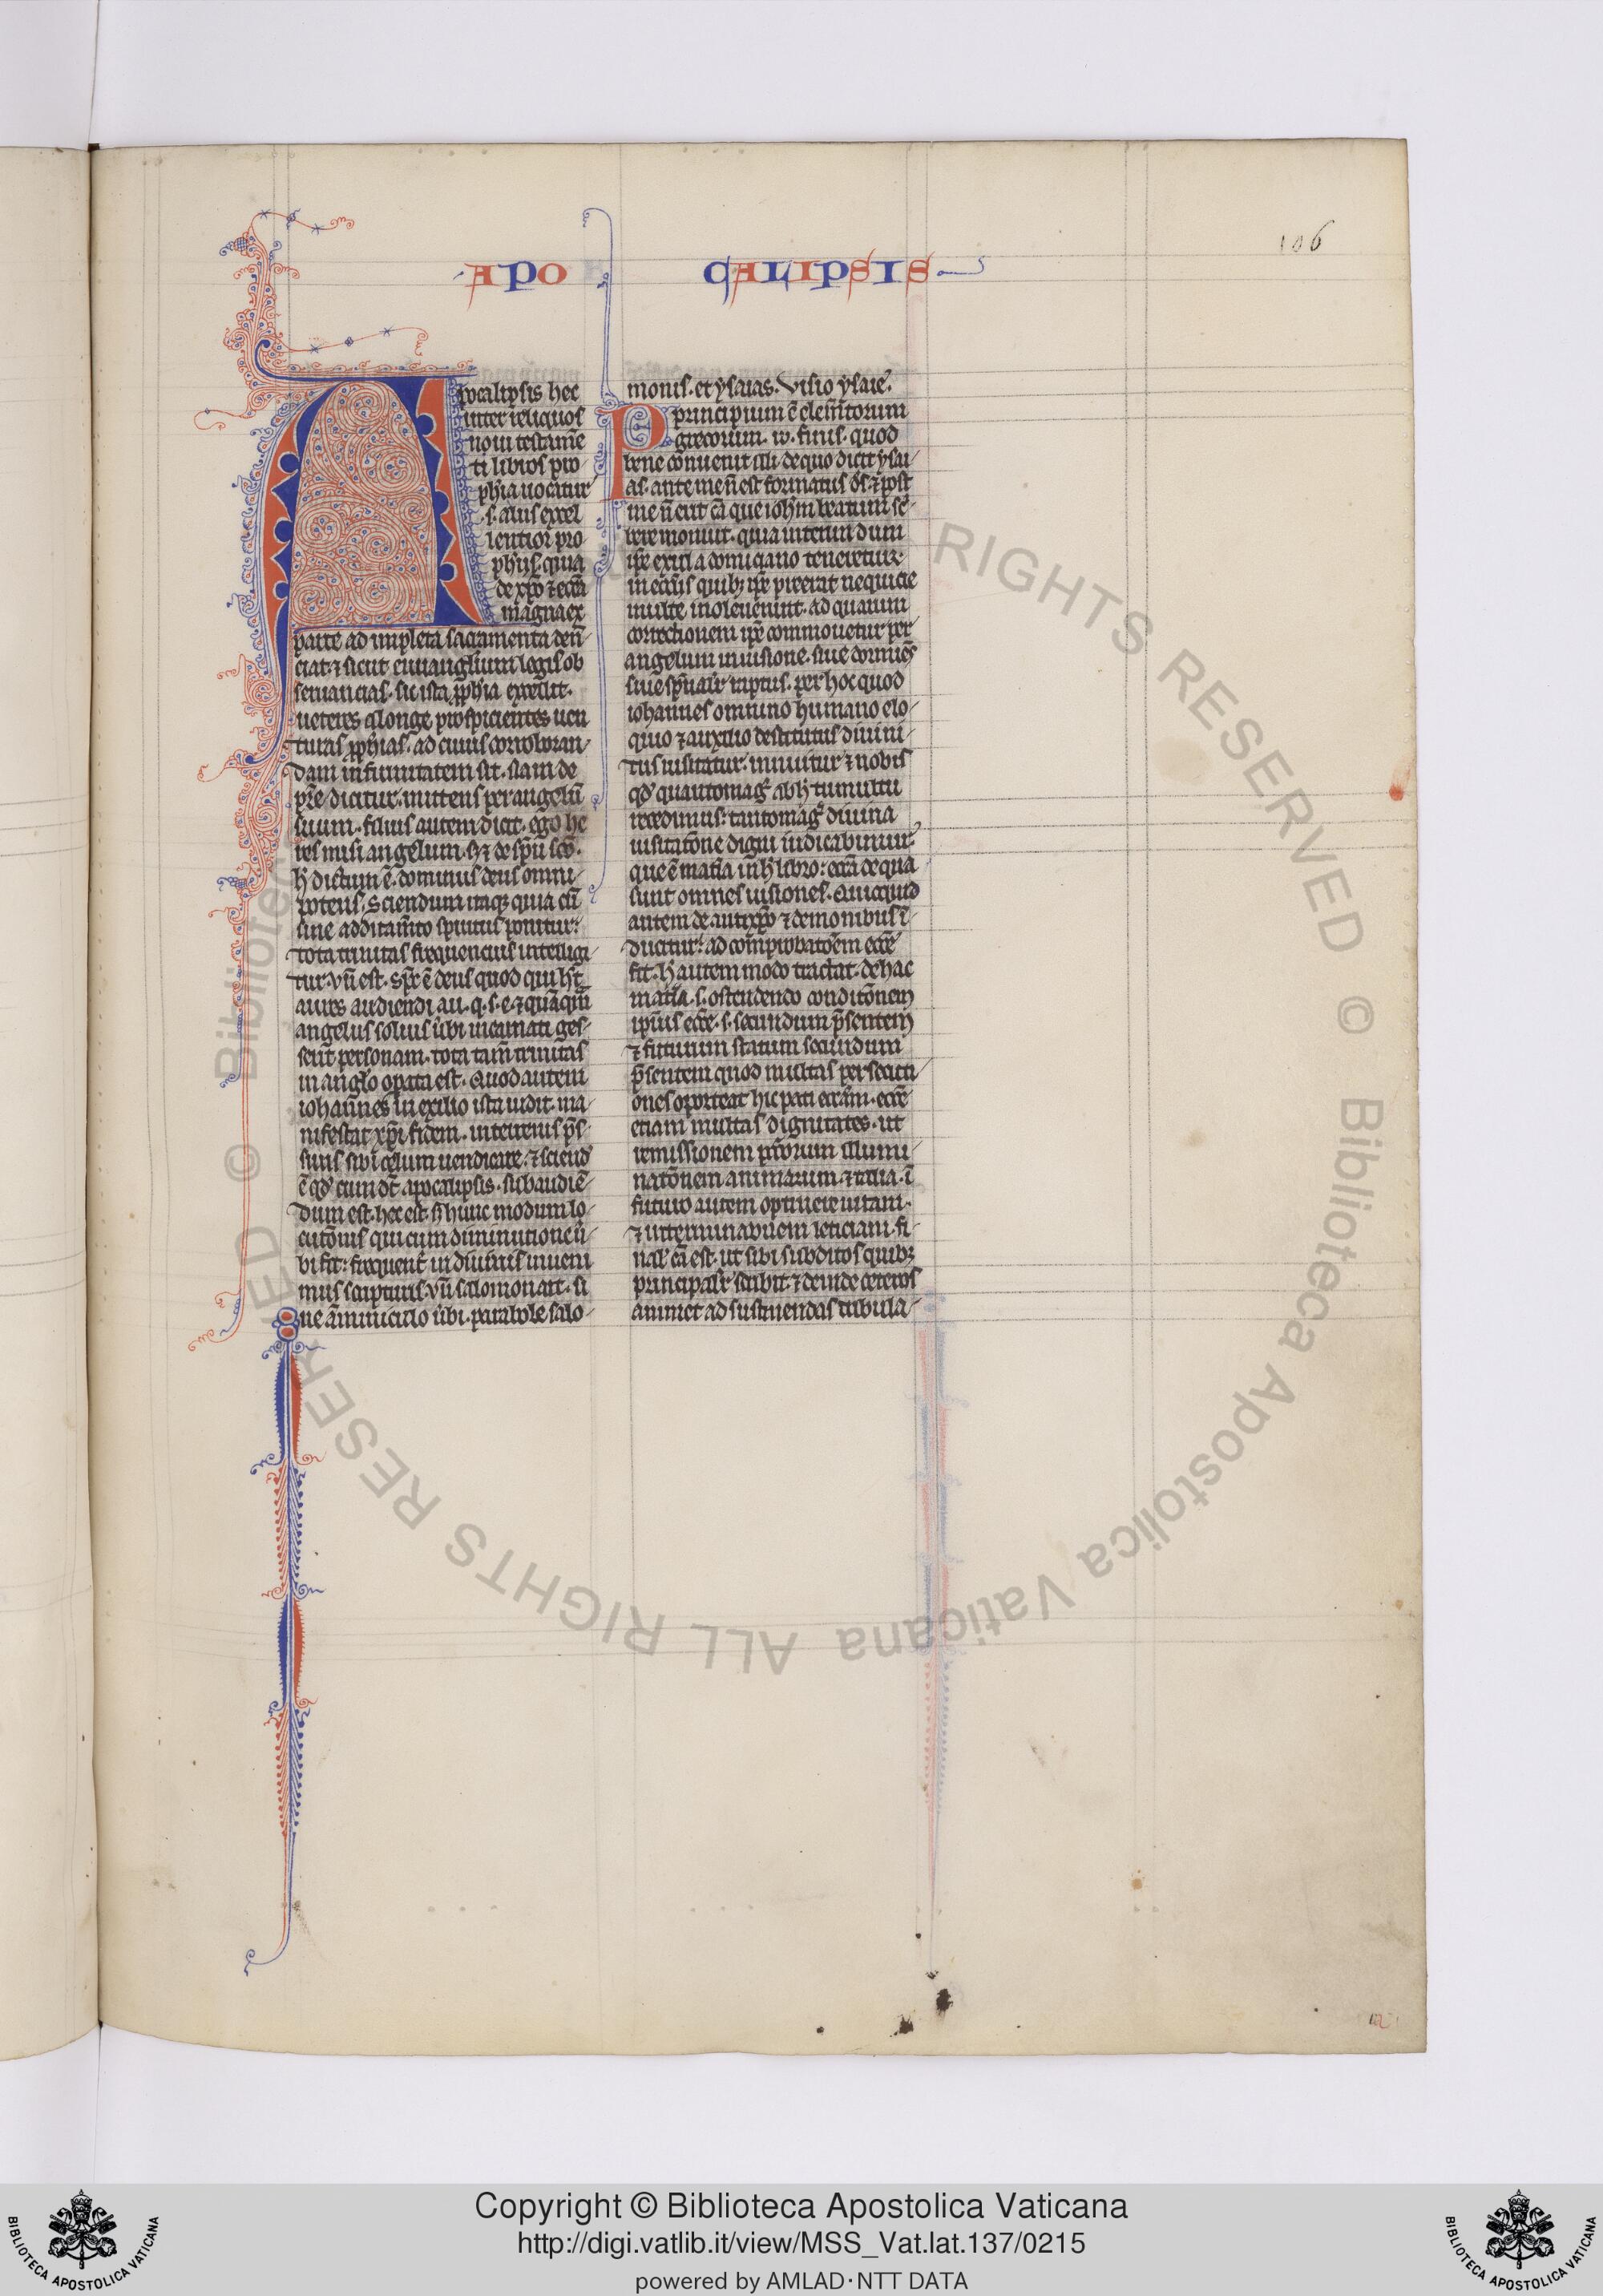 106
APO CALIPSIS
Apocalipsis hec
inter reliquos
noui testam̄e
ti libros pro
ph̄ia uocatur
.s. aliis excel
lentior pro
ph̄iis. quia
de xp̄o ⁊ ecc̄a
magna ex
parte ad impleta sacramenta den̄
ciat. ⁊ sicut euuanglium legis ob
seruancias. sic ista ꝓph̄ia excellit.
ueteres a longe prospicientes uen
turas ꝓph̄ias. ad cuius corroboran
dam in firmitatem sit. nam de
pr̄e dicitur. mittens per angelū
suum. filius autem dicit. ego
ies misi angelum. ⁊ de sp̄u sc̄o.
h̄ dictum ē. dominus deus omni
potens. Sciendum itaqꝫ quia cū
sine additam̄to spiritus ponitur.
tota trinitas frequencius intelligi
tur. vn̄ est. sp̄c ē deus quod qui h̄t
aures audiendi au. q. s. e. ⁊ quāqm̄
angelus solius u̇bi incarnati ges
serit personam. tota tam̄ trinitas
in angl̄o op̄ata est. Quod autem
iohan̄nes in exilio ista uidit. ma
nifestat xp̄i fidem. interueniꝰ p̄s
suris sibi celum uendicare. ⁊ sciend̄
ē qd̄ cum dc̄t apocalipsis. subaudiē
dum est. hec est. s̄ hunc modum lo
cutōnis qui cum diminutione u̇
bi fit: frequent̄ in diuinis inueni
mus scripturis. vn̄ salomon ait. si
ne am̄miculo u̇bi. parabole salo
monis. et ysaias. Visio ysaie.
Principium ē elem̄torum
grecorum. w. finis. quod
bene conuenit illi de quo dicit ysai
as. ante me n̄ est formatus ds̄. ⁊ post
me n̄ erit. cā que ioh̄m beatum sc̄
bere mouit. quia interim dum
ip̄e exul a domiciano teneretur.
in ecc̄iis quibꝫ ip̄e preerat nequicie
multe inoleuerunt. ad quarum
correctionem ip̄e commouetur per
angelum in uisione. siue dormiēs
siue sp̄ualit̄ raptus. per hoc quod
iohannes omnino humano elo
quio ⁊ auxilio destitutus diuini
tus uisitatur. innuitur ⁊ nobis
qd̄ quanto mag̉ ab h̄ tumultu
recedimus: tanto mag̉ diuina
uisitatōne digni iudicabimur.
que ē mat̄ia in h̄ libro: ecc̄a de qua
sunt omnes uisiones. Quicquid
autem de antixp̄o ⁊ demonibus ī
ducitur. ad com̄probatōem ecc̄e
fit. h̄ autem modo tractat. de hac
mat̄ia. s. ostendendo conditōnem
ip̄ius ecc̄e. s. secundum p̄sentem
⁊ futurum statum secundum
p̄sentem quod multas persecuti
ones oporteat hic pati ecc̄am. ecc̄e
etiam multas dignitates. ut
remissionem pc̄torum illumi
natōnem animarum. ⁊ talia. ī
futuro autem optinere uitam.
⁊ interminabilem leticiam. fi
nal̄ cā est. ut sibi subditos quibꝫ
principalit̄ scribit. ⁊ deinde ceteros
animet ad sustinendas tribula
© Biblioteca Apostolica Vaticana ALL RIGHTS RESERVED
Copyright © Biblioteca Apostolica Vaticana
http://digi.vatlib.it/view/MSS_Vat.lat.137/0215
powered by AMLAD·NTT DATA
BIBLIOTECA APOSTOLICA VATICANA
BIBLIOTECA APOSTOLICA VATICANA